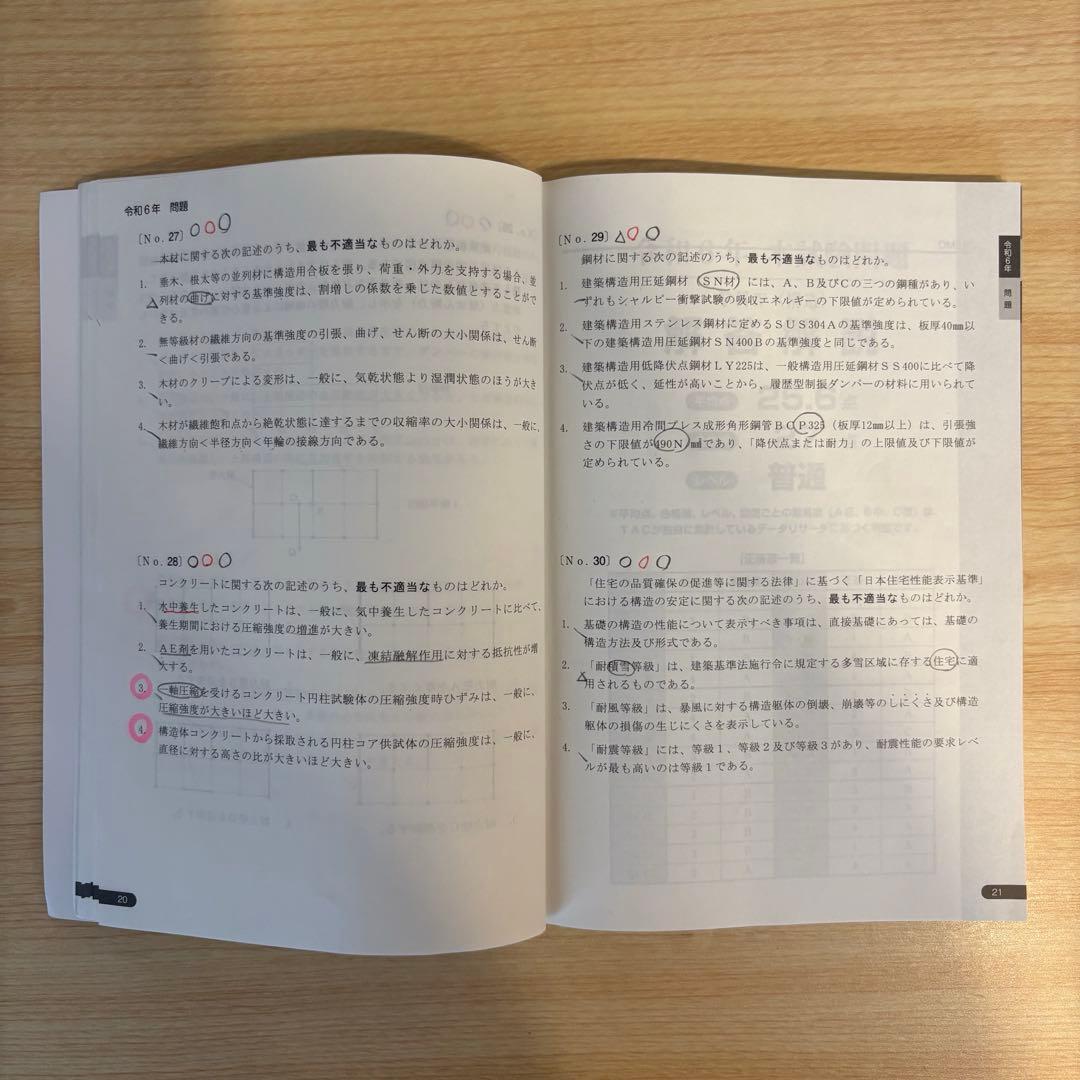 令和6年 問題
〔No. 27〕
木材に関する次の記述のうち、最も不適当なものはどれか。
1. 垂木、根太等の並列材に構造用合板を張り、荷重・外力を支持する場合、並
列材の曲げに対する基準強度は、割増しの係数を乗じた数値とすることがで
きる。
2. 無等級材の繊維方向の基準強度の引張、曲げ、せん断の大小関係は、せん断
<曲げ<引張である。
3. 木材のクリープによる変形は、一般に、気乾状態より湿潤状態のほうが大き
い。
4. 木材が繊維飽和点から絶乾状態に達するまでの収縮率の大小関係は、一般に、
繊維方向<半径方向<年輪の接線方向である。
〔No. 28〕
コンクリートに関する次の記述のうち、最も不適当なものはどれか。
1. 水中養生したコンクリートは、一般に、気中養生したコンクリートに比べて、
養生期間における圧縮強度の増進が大きい。
2. AE剤を用いたコンクリートは、一般に、凍結融解作用に対する抵抗性が増
大する。
3. 一軸圧縮を受けるコンクリート円柱試験体の圧縮強度時ひずみは、一般に、
圧縮強度が大きいほど大きい。
4. 構造体コンクリートから採取される円柱コア供試体の圧縮強度は、一般に、
直径に対する高さの比が大きいほど大きい。
20
令和6年 問題
〔No. 29〕
鋼材に関する次の記述のうち、最も不適当なものはどれか。
1. 建築構造用圧延鋼材(SN材)には、A、B及びCの三つの鋼種があり、い
ずれもシャルピー衝撃試験の吸収エネルギーの下限値が定められている。
2. 建築構造用ステンレス鋼材に定めるSUS304Aの基準強度は、板厚40mm以
下の建築構造用圧延鋼材SN400Bの基準強度と同じである。
3. 建築構造用低降伏点鋼材LY225は、一般構造用圧延鋼材SS400に比べて降
伏点が低く、延性が高いことから、履歴型制振ダンパーの材料に用いられて
いる。
4. 建築構造用冷間プレス成形角形鋼管BCP325(板厚12mm以上)は、引張強
さの下限値が490N/㎟であり、「降伏点または耐力」の上限値及び下限値が
定められている。
〔No. 30〕
「住宅の品質確保の促進等に関する法律」に基づく「日本住宅性能表示基準」
における構造の安定に関する次の記述のうち、最も不適当なものはどれか。
1. 基礎の構造の性能について表示すべき事項は、直接基礎にあっては、基礎の
構造方法及び形式である。
2. 「耐積雪等級」は、建築基準法施行令に規定する多雪区域に存する住宅に適
用されるものである。
3. 「耐風等級」は、暴風に対する構造躯体の倒壊、崩壊等のしにくさ及び構造
躯体の損傷の生じにくさを表示している。
4. 「耐震等級」には、等級1、等級2及び等級3があり、耐震性能の要求レベ
ルが最も高いのは等級1である。
21